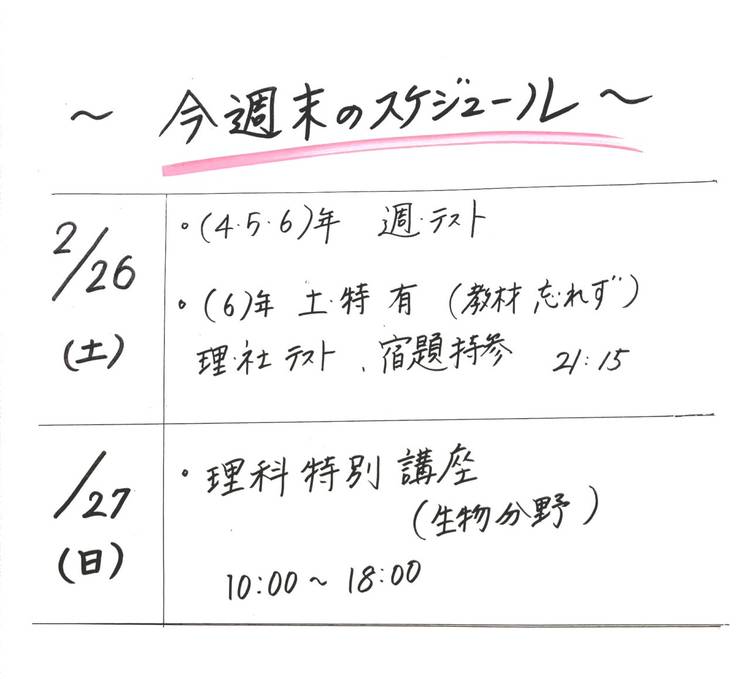 ～ 今週末のスケジュール ～
2/26
(土)
・(4・5・6)年 週・テスト
・(6)年 土・特 有 (教材 忘れず)
理・社 テスト、宿題持参 21:15
/27
(日)
・理科特別講座
(生物分野)
10:00～18:00